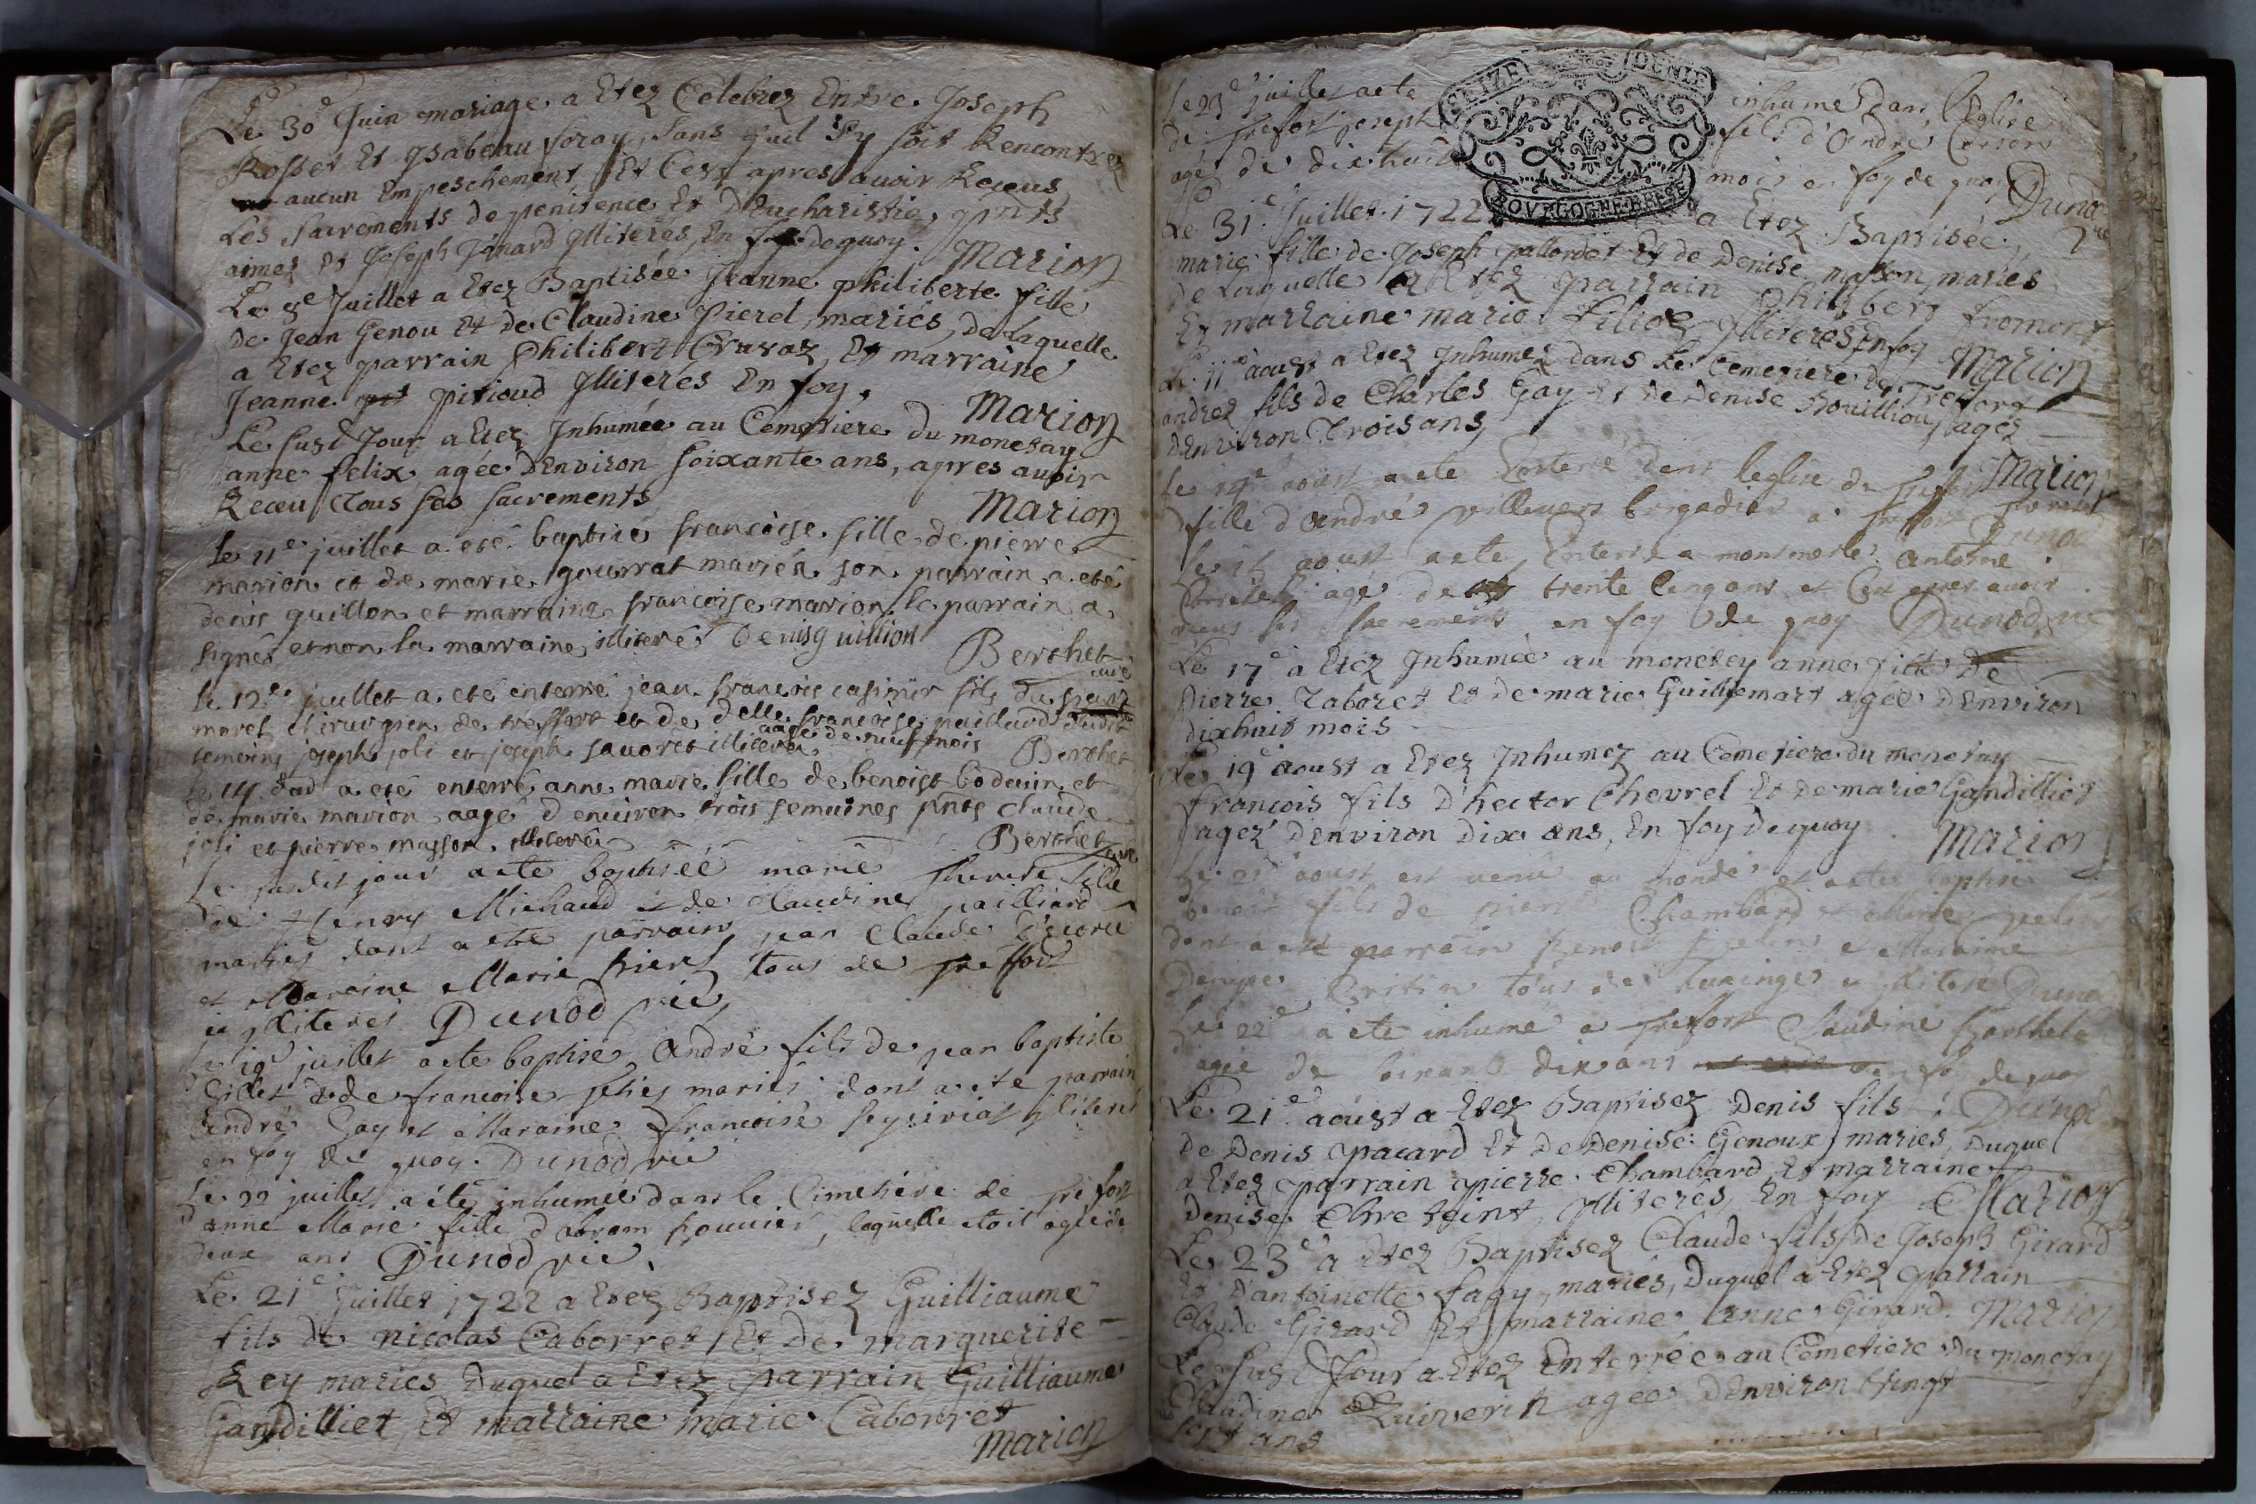 Le 30e Juin mariage a Etez Celebrez Entre Joseph
Rosset Et Ysabeau foray, sans quil sy soit Rencontrez
aucun Empeschement Et Cest apres avoir Receus
Les sacrements de penitence Et D'Eucharistie, pnts
aimez Et Joseph Janard Illiterés, En foy dequoy. Marion
Le 9e Juillet a Etez Baptisée Jeanne philiberte fille
de Jean Genou Et de Claudine Pierel, mariés, de Laquelle
a Etez parrain Philibert Cruraz, Et marraine
Jeanne pitioud Illiterés En foy.
Marion
Le susd Jour a Etez Inhumée au Cemetiere du monetay
anne felix agée D'Environ soixante ans, apres avoir
Receu Tous ses sacrements
Marion
le 11e juillet a eté baptisé francoise fille de pierre
marion et de marie gourrat mariés son parrain a eté
denis guillon et marraine francoise marion le parrain a
signé et non la marraine, illiteré Denis guillion
Berthet curé
le 12e juillet a eté enterré jean francois casimir fils du sieur
morel chirurgien de treffort et de delle francoise paillard
aagé de neuf mois
temoins joseph joli et joseph savoret illiterés Berthet
le 14 dud a eté enterré anne marie fille de benoist bodevin et
de marie marion aagé d'environ trois semaines pnts claude
joli et pierre masson illiterés
Berthet curé
Le susdit jour a ete baptisée marie fille
de Henry Michaud et de Claudine pailliard
mariés dont a ete parrain jean Claude
et Maraine Marie pierel tous de treffort
et illiteres Dunod vic
Le 19e juillet a ete baptisé André fils de jean baptiste
Gillet et de francoise mariés dont a ete parrain
André Gay et Maraine francoise illiteré
en foy de quoy. Dunod vic
Le 22 juillet a été inhumée dans le Cimetiére de trefort
anne Marie fille d'abram bouvier, laquelle etoit agée de
deux ans Dunod vic.
Le 21e Juillet 1722 a Etez Baptisez Guilliaume
fils de nicolas Caborret Et de marguerite
Rey mariés Duquel a Etez parrain Guilliaume
Gandilliet Et marraine marie Caborret
Marion
SEIZE DENIE
BOVRGOGNE BRESSE
Le 23e juillet a ete inhumé dans l'Eglise
de trefort joseph fils d'André
agé de dix huit mois en foy de quoy Dunod
Le 31e Juillet 1722 a Etez Baptisée
marie fille de Joseph pallordet Et de Denise masson mariés
de Laquelle a Etez parrain Philibert fromont
Et marraine marie filiod Illiterés En foy Marion
Le 11e aoust a Etez Inhumez dans Le Cemetiere de Trefort
andrez fils de Charles Gay Et de Denise Bouilliou, agez
D'Environ Trois ans,
Marion
Le 14e aoust a ete Enterré dans leglise de trefort
fille d'andré villemers brigadier a trefort Dunod
Le aoust a ete Enterré a montmerle Antoine
agé de trente Cinq ans et Cest apres avoir
receu ses sacrements en foy de quoy Dunod vic
Le 17e a Etez Inhumée au monetey anne fille De
Pierre Taboret Et de marie Guillemart agée D'Environ
dixhuit mois
Le 19e aoust a Etez Inhumez au Cemetiere du monetay
francois fils D'hector Chevrel Et de marie Gandilliet
agez D'Environ Dix ans, En foy Dequoy. Marion
Le 21e aoust est venu au monde et a ete baptisé
benoit fils de pierre Chambard et
dont a ete parrain benoit et Maraine
Denyse tous de et illiteré Dunod
Le 22e a ete inhumé a trefort Claudine
agée de soixante dix ans en foy de quoy
Dunod
Le 21e aoust a Etez Baptisez Denis fils
de Denis pacard Et de Denise Genoux, mariés, Duquel
a Etez parrain pierre Chambard, Et marraine
Denise Chretoint, Illiterés En foy Marion
Le 23e a Etez Baptisez Claude fils de Joseph Girard
Et d'antoinette fagy, mariés, Duquel a Etez parrain
Claude Girard Et marraine anne Girard. Marion
Le susd Jour a Etez Enterrée au Cemetiere du monetay
Claudine agée D'Environ Vingt
sept ans